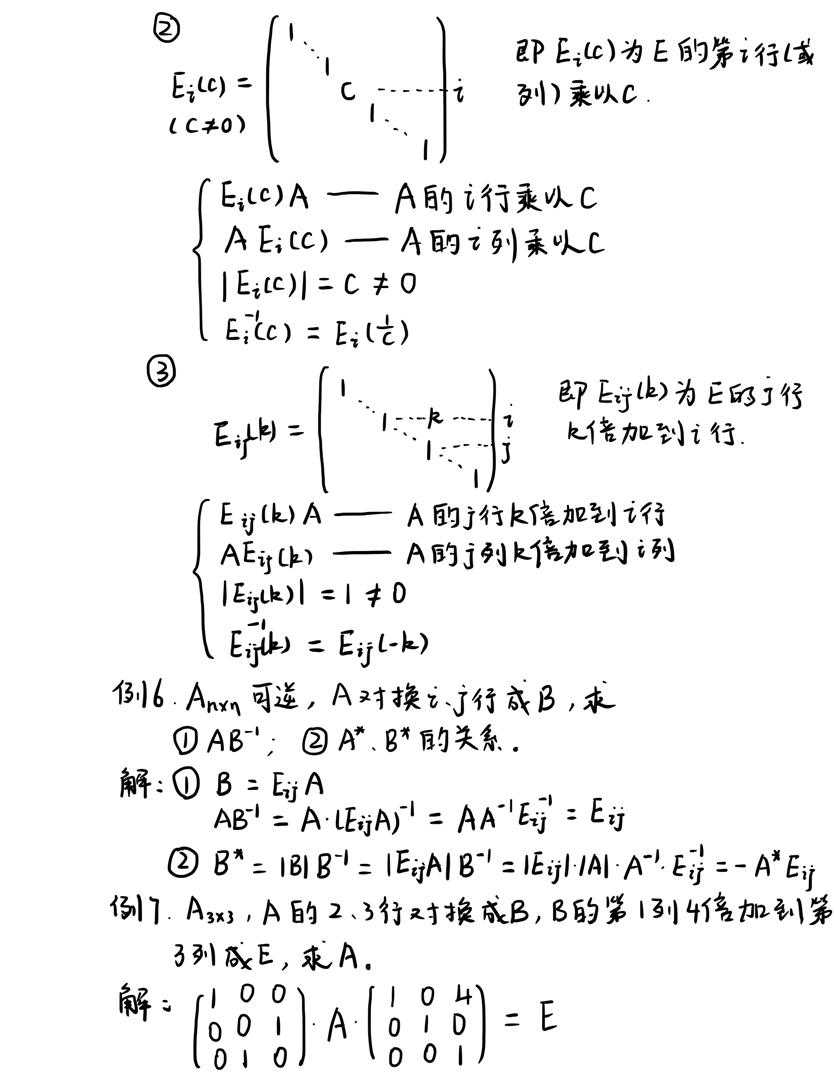 ②
E_i(c) = (1 ⋱ 1 c 1 ⋱ 1) i 即 E_i(c) 为 E 的第 i 行(或
(c≠0) 列)乘以 C.
E_i(c)A —— A 的 i 行乘以 C
A E_i(c) —— A 的 i 列乘以 C
|E_i(c)| = C ≠ 0
E_i^{-1}(c) = E_i(1/c)
③
E_ij(k) = (1 ⋱ 1 k 1 ⋱ 1) i j 即 E_ij(k) 为 E 的 j 行
k倍加到 i 行.
E_ij(k) A —— A 的 j 行 k 倍加到 i 行
A E_ij(k) —— A 的 j 列 k 倍加到 i 列
|E_ij(k)| = 1 ≠ 0
E_ij^{-1}(k) = E_ij(-k)
例6. A_{n×n} 可逆, A 对换 i、j 行成 B, 求
① AB^{-1}; ② A*、B* 的关系.
解: ① B = E_ij A
AB^{-1} = A·(E_ij A)^{-1} = AA^{-1}E_ij^{-1} = E_ij
② B* = |B|B^{-1} = |E_ij A|B^{-1} = |E_ij|·|A|·A^{-1}·E_ij^{-1} = -A*E_ij
例7. A_{3×3}, A 的 2、3 行对换成 B, B 的第 1 列 4 倍加到第
3 列成 E, 求 A.
解: (1 0 0; 0 0 1; 0 1 0) · A · (1 0 4; 0 1 0; 0 0 1) = E